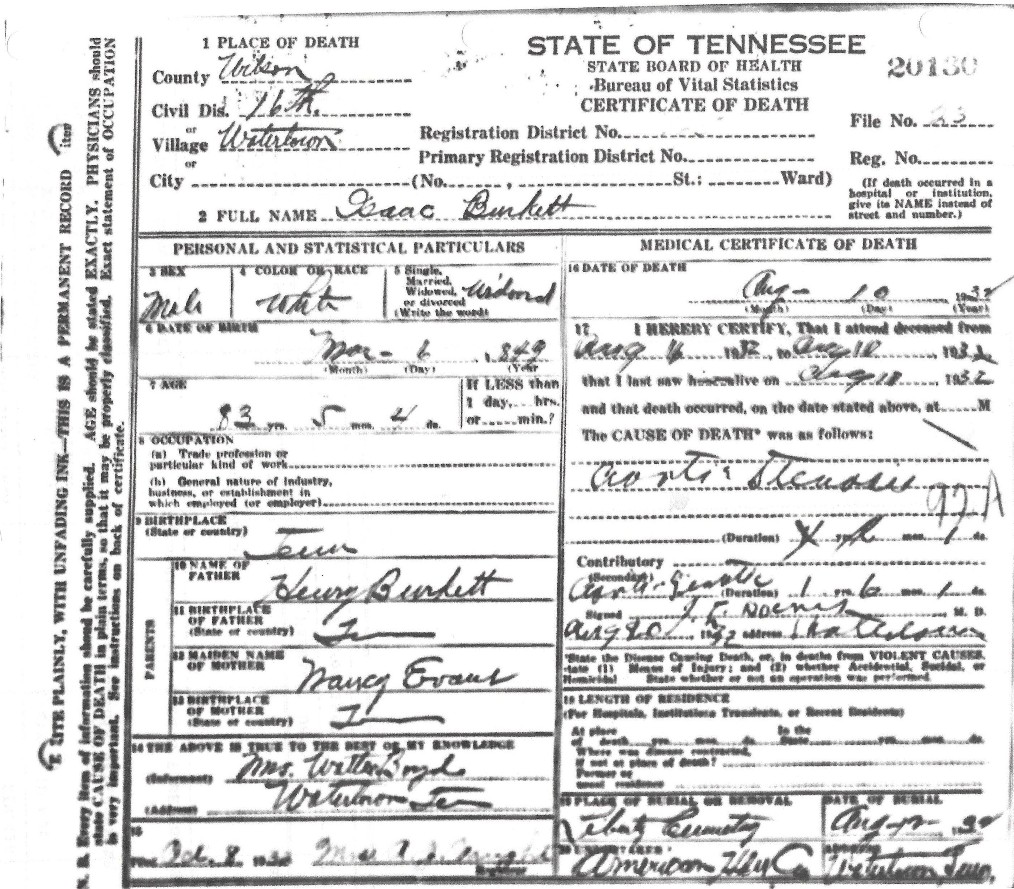 STATE OF TENNESSEE
STATE BOARD OF HEALTH
Bureau of Vital Statistics
CERTIFICATE OF DEATH
20130
1 PLACE OF DEATH
County Wilson
Civil Dis. 16th.
or
Village Watertown
or
City (No. , St.: Ward)
Registration District No.
Primary Registration District No.
File No. 23
Reg. No.
(If death occurred in a
hospital or institution,
give its NAME instead of
street and number.)
2 FULL NAME Isaac Burkett
PERSONAL AND STATISTICAL PARTICULARS
3 SEX
Male
4 COLOR OR RACE
White
5 Single,
Married,
Widowed,
or divorced
(Write the word)
Widowed
6 DATE OF BIRTH
Mar - 6 1849
(Month) (Day) (Year
7 AGE
83 yrs. 5 mos. 4 ds.
If LESS than
1 day, hrs.
or min.?
8 OCCUPATION
(a) Trade profession or
particular kind of work
(b) General nature of industry,
business, or establishment in
which employed (or employer)
9 BIRTHPLACE
(State or country)
Tenn
PARENTS
10 NAME OF
FATHER
Henry Burkett
11 BIRTHPLACE
OF FATHER
(State or country)
12 MAIDEN NAME
OF MOTHER
Nancy Evans
13 BIRTHPLACE
OF MOTHER
(State or country)
14 THE ABOVE IS TRUE TO THE BEST OF MY KNOWLEDGE
(Informant) Mrs. Walter Boyd
(Address) Watertown Ten
15
Oct. 8, 193
MEDICAL CERTIFICATE OF DEATH
16 DATE OF DEATH
Aug - 10 1932
(Month) (Day) (Year)
17 I HEREBY CERTIFY, That I attend deceased from
Aug 1932, to Aug 1932
that I last saw alive on Aug 1932
and that death occurred, on the date stated above, at M
The CAUSE OF DEATH* was as follows:
Aortic Stenosis
92A
(Duration) yrs. mos. ds.
Contributory
(Secondary)
(Duration) 1 yrs. 6 mos. 1 ds.
Signed M. D.
Aug 1932 address Watertown
*State the Disease Causing Death, or, in deaths from VIOLENT CAUSES,
state (1) Means of Injury; and (2) whether Accidental, Suicidal, or
Homicidal State whether or not an operation was performed.
18 LENGTH OF RESIDENCE
(For Hospitals, Institutions Transients, or Recent Residents)
At place
of death yrs. mos. ds.
In the
State yrs. mos. ds.
Where was disease contracted,
if not at place of death?
Former or
usual residence
19 PLACE OF BURIAL OR REMOVAL
Cemetery
DATE OF BURIAL
Aug 1932
American Co
Watertown Tenn.
N. B. Every item of information should be carefully supplied. AGE should be stated EXACTLY. PHYSICIANS should
state CAUSE OF DEATH in plain terms, so that it may be properly classified. Exact statement of OCCUPATION
is very important. See instructions on back of certificate.
ITE PLAINLY, WITH UNFADING INK—THIS IS A PERMANENT RECORD